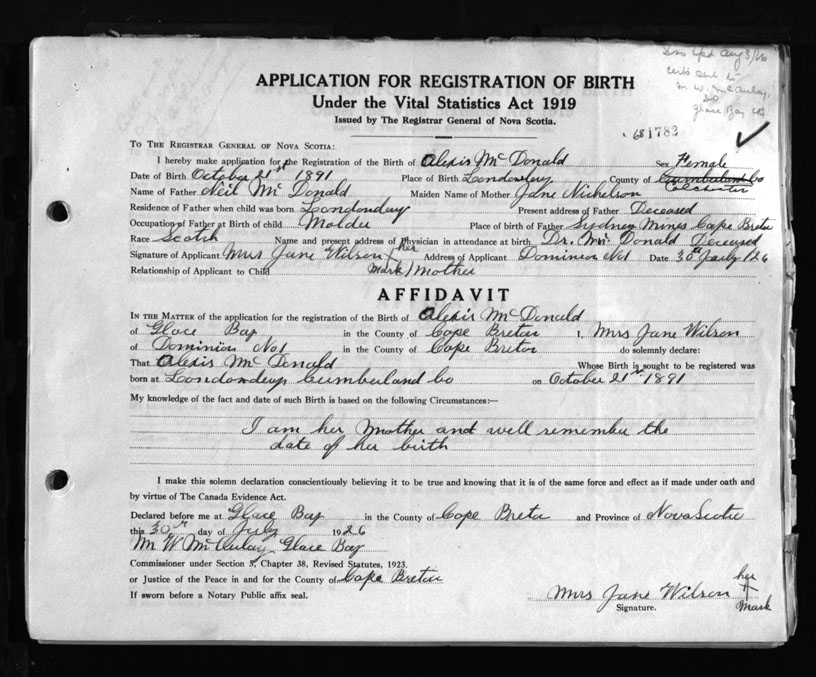 certs sent to
Glace Bay CB
APPLICATION FOR REGISTRATION OF BIRTH
Under the Vital Statistics Act 1919
Issued by The Registrar General of Nova Scotia.
681783
TO THE REGISTRAR GENERAL OF NOVA SCOTIA:
I hereby make application for the Registration of the Birth of Alexis McDonald Sex Female
Date of Birth October 21st 1891 Place of Birth Londondery County of Cumberland Co
Colchester
Name of Father Neil McDonald Maiden Name of Mother Jane Nicholson
Residence of Father when child was born Londondery Present address of Father Deceased
Occupation of Father at Birth of child Molder Place of birth of Father Sydney Mines Cape Breton
Race Scotch Name and present address of Physician in attendance at birth Dr. McDonald Deceased
Signature of Applicant Mrs Jane Wilson her X mark Address of Applicant Dominion No1 Date 30th July 126
Relationship of Applicant to Child Mother
AFFIDAVIT
IN THE MATTER of the application for the registration of the Birth of Alexis McDonald
of Glace Bay in the County of Cape Breton I, Mrs Jane Wilson
of Dominion No1 in the County of Cape Breton do solemnly declare:
That Alexis McDonald Whose Birth is sought to be registered was
born at Londondery Cumberland Co on October 21st 1891
My knowledge of the fact and date of such Birth is based on the following Circumstances:—
I am her Mother and well remember the
date of her birth
I make this solemn declaration conscientiously believing it to be true and knowing that it is of the same force and effect as if made under oath and
by virtue of The Canada Evidence Act.
Declared before me at Glace Bay in the County of Cape Breton and Province of Nova Scotia
this 30th day of July 1926
M W McAulay Glace Bay
Commissioner under Section 8, Chapter 38, Revised Statutes, 1923.
or Justice of the Peace in and for the County of Cape Breton
If sworn before a Notary Public affix seal.
Mrs Jane Wilson her X mark
Signature.